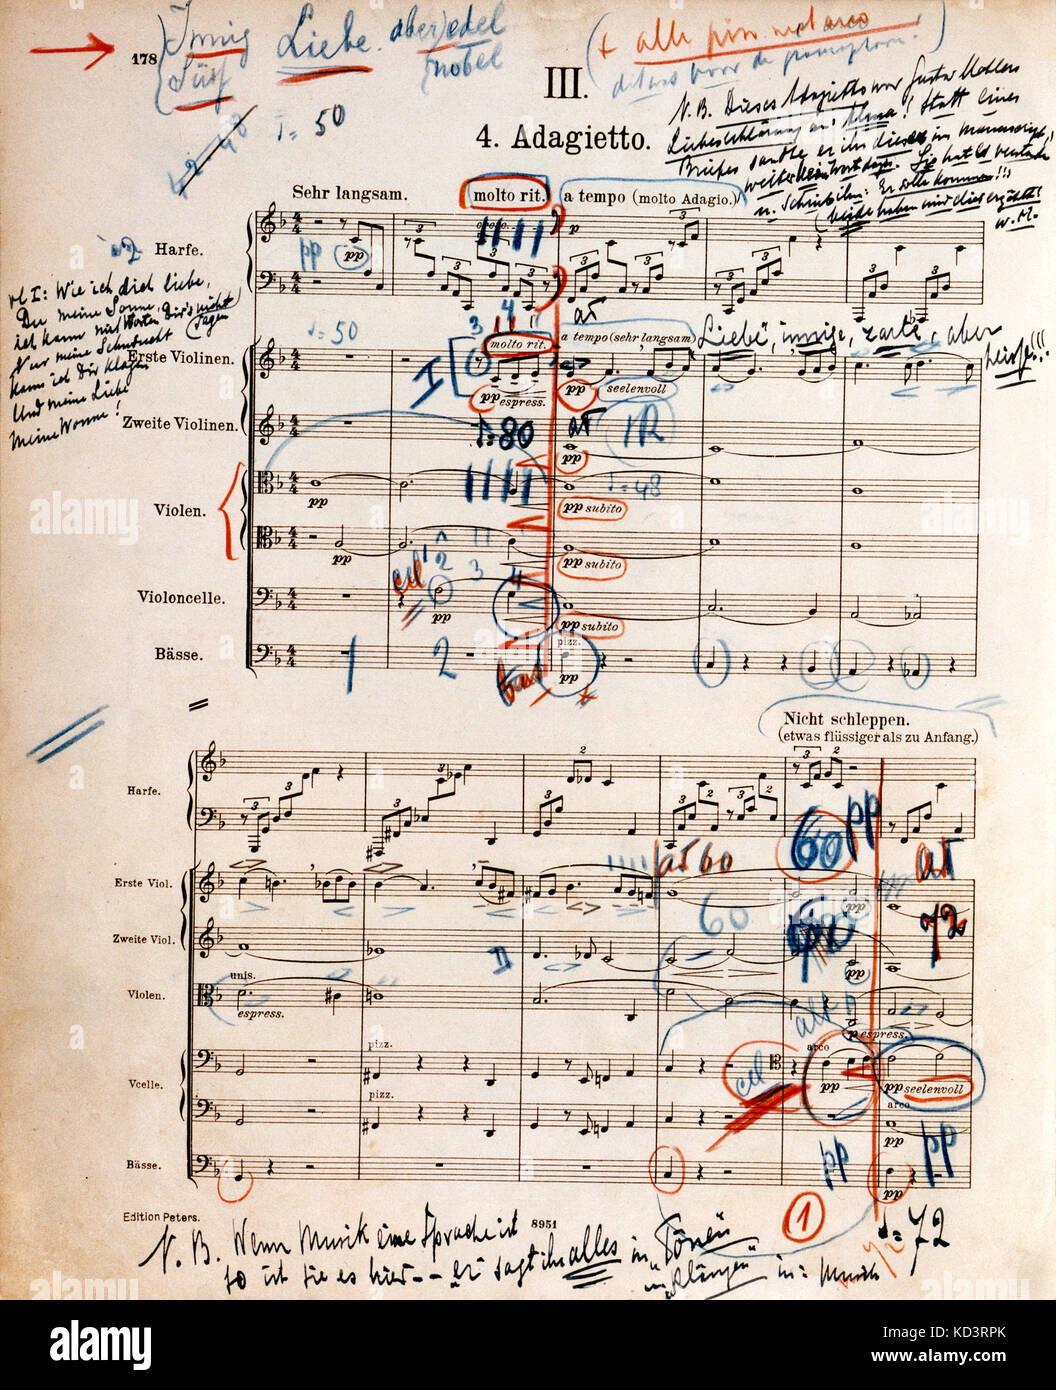 178
Innig
Süss
Liebe. aber edel
nobel
+ alle pizz met arco
III.
4. Adagietto.
♩=50
N.B. Dieses Adagietto war Gustav Mahlers
Liebeserklärung an Alma! Statt eines
Briefes sandte er ihr dieses im Manuscript;
weiter kein Wort dazu. Sie hat es verstanden
u. schrieb ihm: Er solle kommen!!!
(beide haben mir dies erzählt!
W.M.
Sehr langsam.
molto rit.
a tempo (molto Adagio.)
Harfe.
pp
3 3 3 3 3 3
vl I: Wie ich dich liebe,
Du meine Sonne,
ich kann mit Worten Dir's nicht
sagen
Nur meine Sehnsucht
kann ich Dir klagen
Und meine Liebe
Meine Wonne!
♩=50
3 4
aT
molto rit.
a tempo (sehr langsam)
Liebe, innige, zarte, aber
heisse!!!
Erste Violinen.
I
pp espress.
pp
seelenvoll
Zweite Violinen.
♩=80
aT
pp
Violen.
pp
♩=48
pp subito
pp
pp subito
Violoncelle.
cel
2 3 4
pp
pp subito
Bässe.
1 2
pizz.
pp
Nicht schleppen.
(etwas flüssiger als zu Anfang.)
Harfe.
3 3 3 3 3 2 3 2 3 2 3 2
60 pp
aT 60
aT
Erste Viol.
pp
60
72
Zweite Viol.
II
pp
unis.
Violen.
espress.
alt
p espress.
pizz.
arco
Vcelle.
cel
pp
pp seelenvoll
pizz.
arco
pp
Bässe.
pp
pp
pp
1
♩=72
72
Edition Peters.
8951
N.B. Wenn Musik eine Sprache ist
so ist sie es hier -- "er" sagt ihr alles in "Tönen"
in "Klängen" in: Musik
alamy
alamy
Image ID: KD3RPK
www.alamy.com